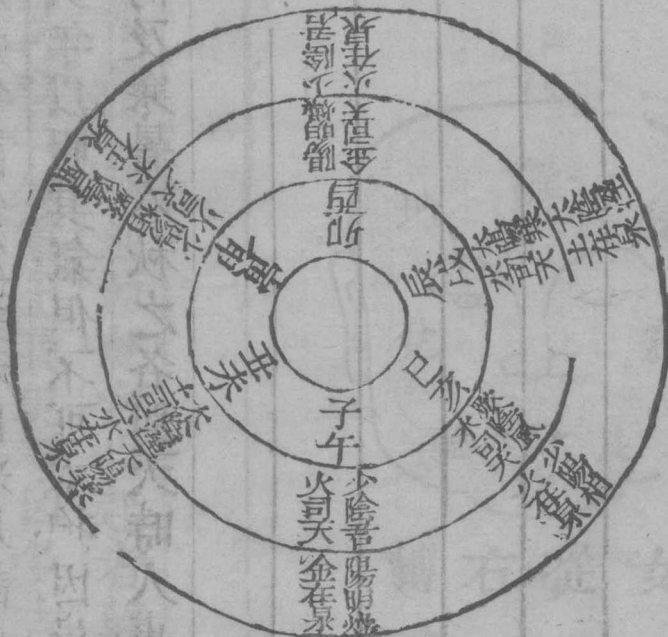 子午
少陰君
火司天
陽明燥
金在泉
丑未
太陰濕
土司天
太陽寒
水在泉
寅申
少陽相
火司天
厥陰風
木在泉
卯酉
陽明燥
金司天
少陰君
火在泉
辰戌
太陽寒
水司天
太陰濕
土在泉
巳亥
厥陰風
木司天
少陽相
火在泉